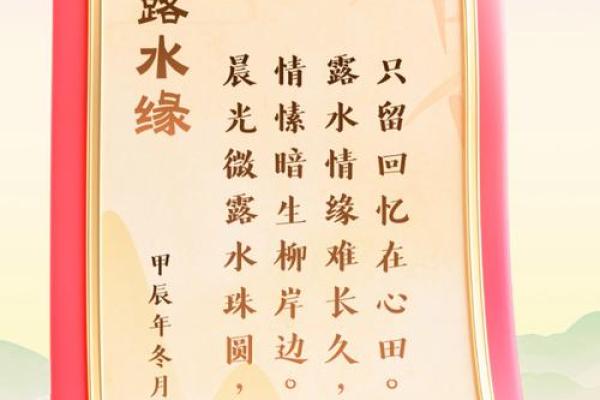 露水缘
晨光微露水珠圆，
情愫暗生柳岸边。
露水情缘难长久，
只留回忆在心田。
甲辰年冬月